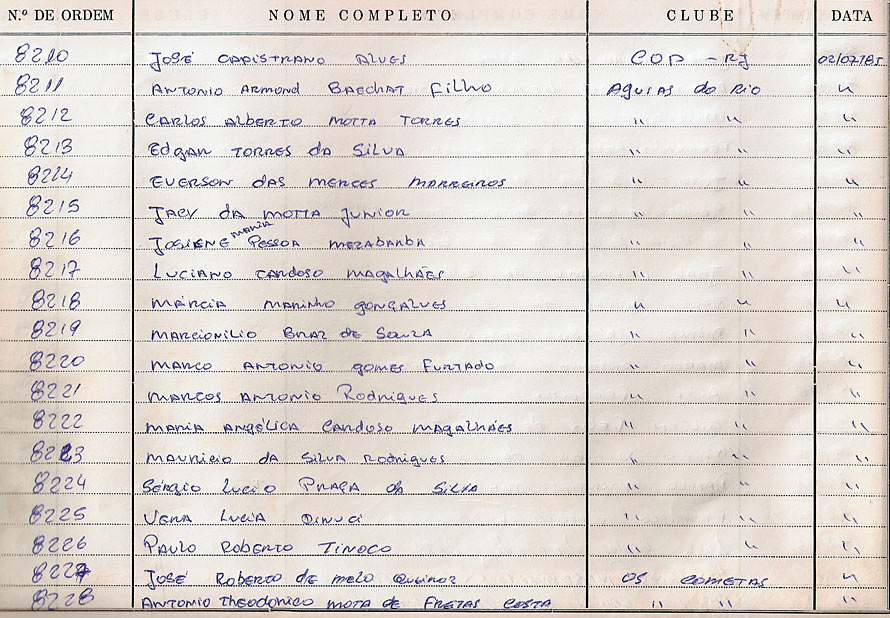 N.º DE ORDEM NOME COMPLETO CLUBE DATA
8210 José Capistrano Alves COP - RJ 02/07/85
8211 Antonio Armond Baechat Filho Aguias do Rio "
8212 Carlos Alberto Motta Torres " " "
8213 Edgar Torres da Silva " " "
8214 Everson das Merces Marreiros " " "
8215 Jacy da Motta Junior " " "
8216 Josiene Maria Pessoa Mezabarba " " "
8217 Luciano Cardoso Magalhães " " "
8218 Márcia Marinho Gonçalves " " "
8219 Marcionilio Braz de Souza " " "
8220 Marco Antonio Gomes Furtado " " "
8221 Marcos Antonio Rodrigues " " "
8222 Maria Angélica Cardoso Magalhães " " "
8223 Mauricio da Silva Rodrigues " " "
8224 Sérgio Lucio Praça da Silva " " "
8225 Vera Lucia " " "
8226 Paulo Roberto Tinoco " " "
8227 José Roberto de Melo Queiroz Os Cometas "
8228 Antonio Theodorico Mota de Freitas Costa " "